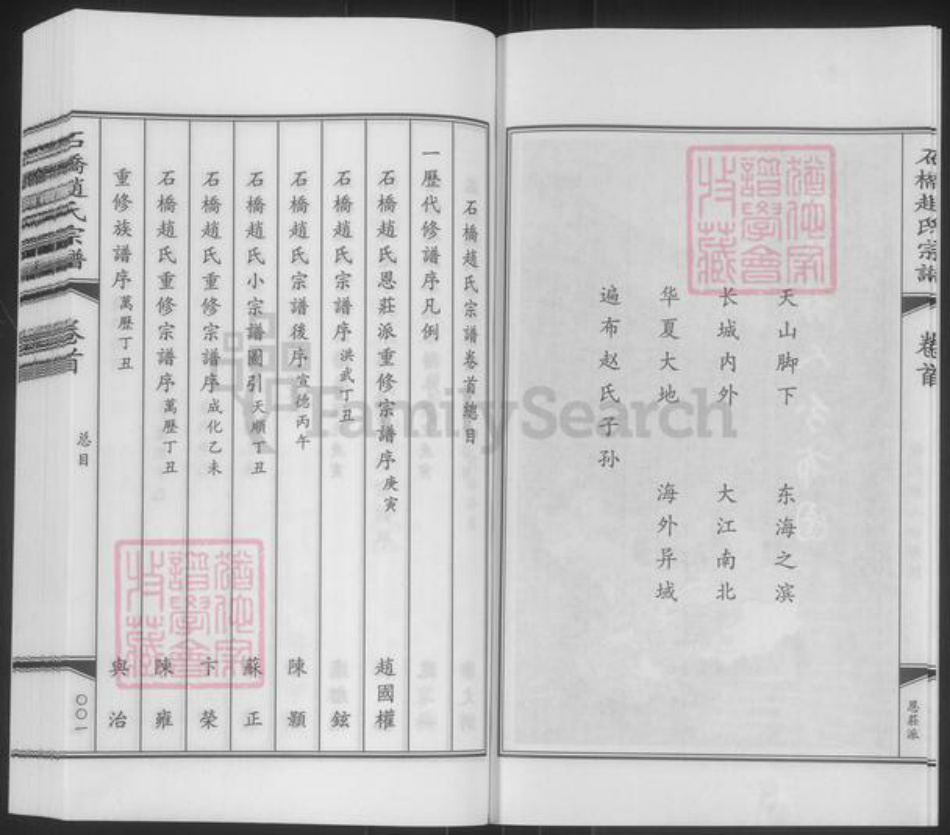 石橋趙氏宗譜
卷首
恩莊派
天山脚下 东海之滨
长城内外 大江南北
华夏大地 海外异域
遍布赵氏子孙
石橋趙氏宗譜卷首總目
一歷代修譜序凡例
石橋趙氏恩莊派重修宗譜序庚寅 趙國權
石橋趙氏宗譜序洪武丁丑 鉉
石橋趙氏宗譜後序宣德丙午 陳顥
石橋趙氏小宗譜圖引天順丁丑 蘇正
石橋趙氏重修宗譜序成化乙未 卞榮
石橋趙氏重修宗譜序萬歷丁丑 陳雍
重修族譜序萬歷丁丑 與治
石橋趙氏宗譜
卷首
总目
〇〇一
FamilySearch
譜學會
收藏
譜學會
收藏